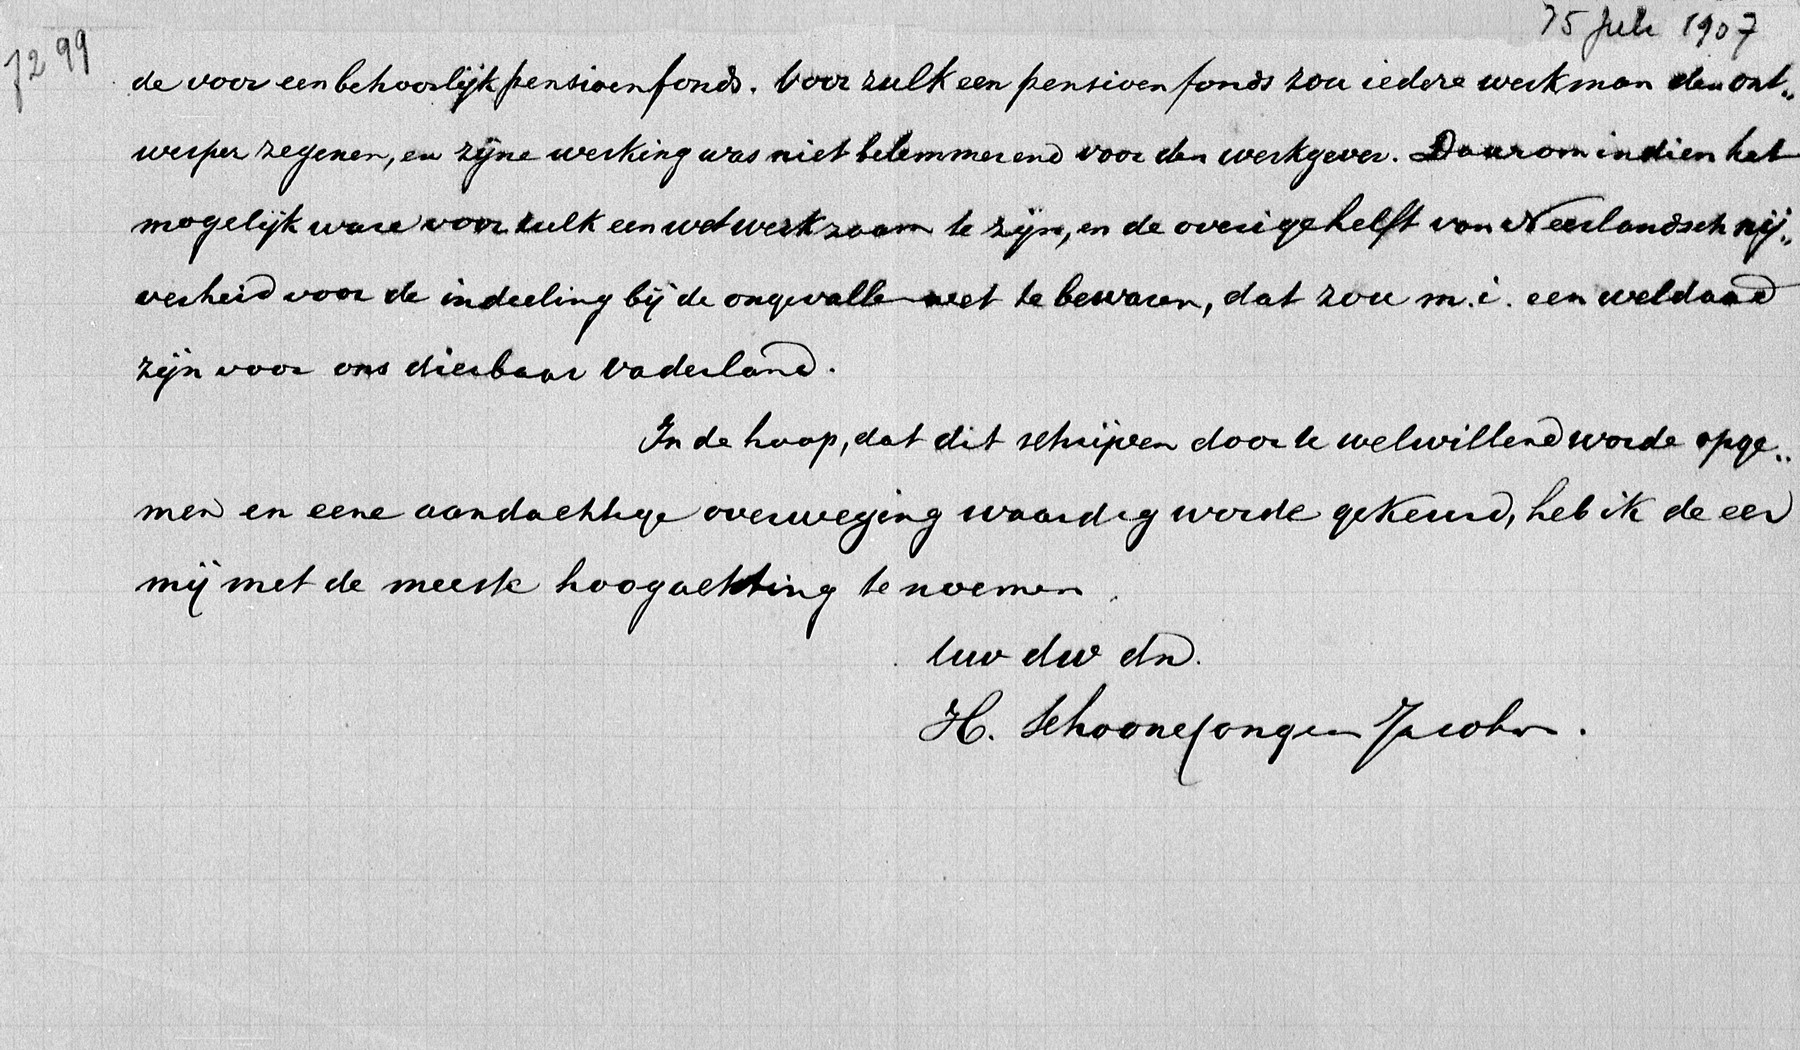 15 Juli 1907
7299
de voor een behoorlijk pensioenfonds. Voor zulk een pensioenfonds zou iedere werkman den ont„
werper zegenen, en zijne werking was niet belemmerend voor den werkgever. Daarom indien het
mogelijk ware voor zulk een wet werkzaam te zijn, en de overige helft van Neerlandsch nij„
verheid voor de indeeling bij de ongevallenwet te bewaren, dat zou m.i. een weldaad
zijn voor ons dierbaar Vaderland.
In de hoop, dat dit schrijven door U welwillend worde opge„
men en eene aandachtige overweging waardig worde gekeurd, heb ik de eer
mij met de meeste hoogachting te noemen
Uw dw dn.
H. Schoonejongen Jacobzn.